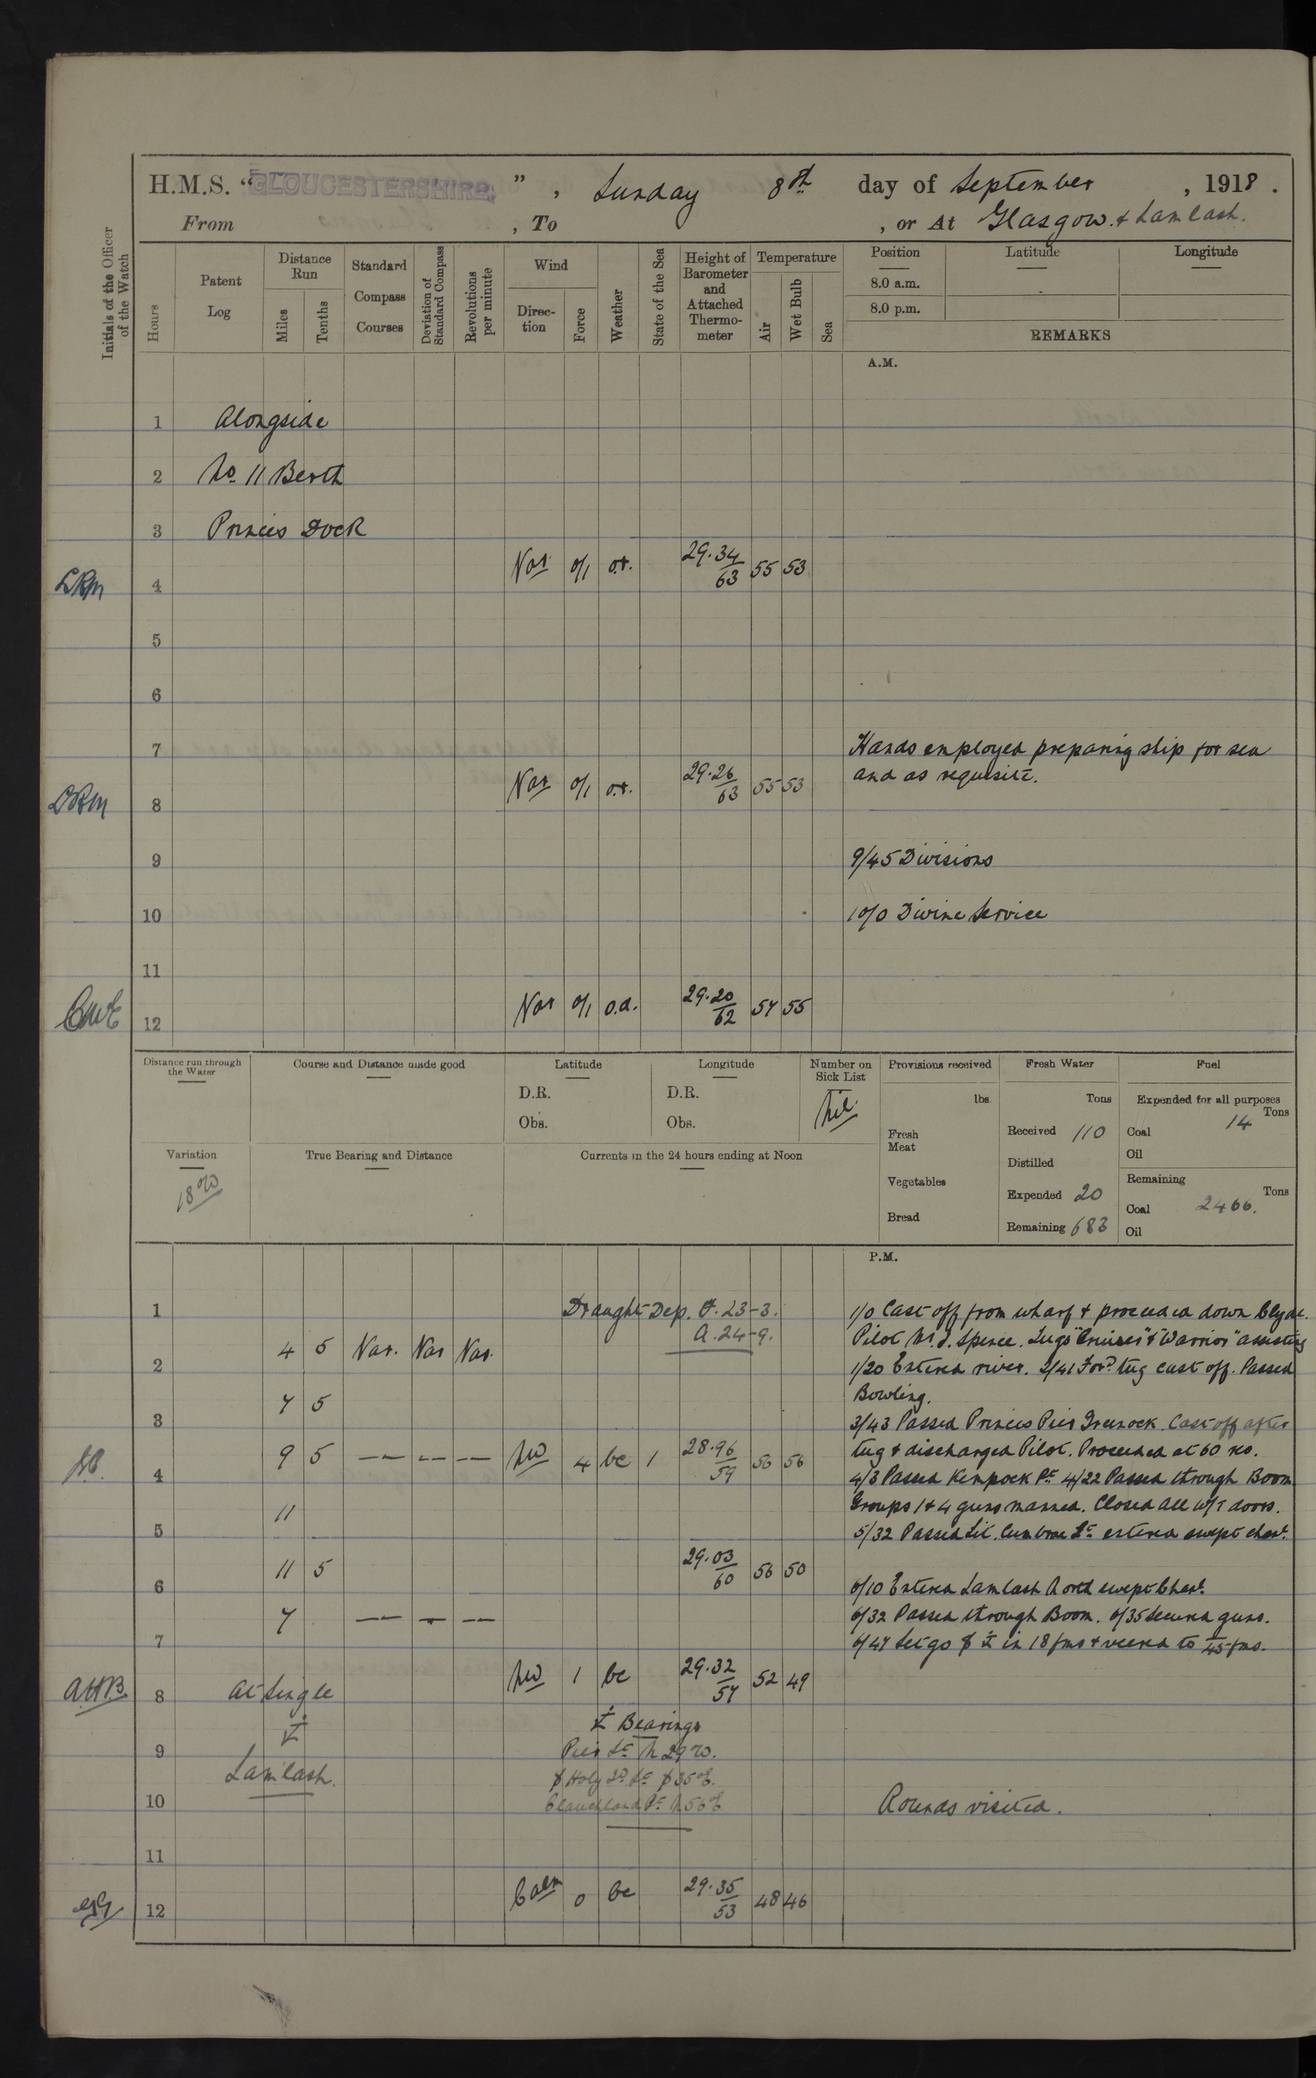 H.M.S. "GLOUCESTERSHIRE", Sunday 8th day of September, 1918.
From , To , or At Glasgow & Lamlash.
Initials of the Officer of the Watch
Hours
Patent Log
Distance Run
Miles
Tenths
Standard Compass Courses
Deviation of Standard Compass
Revolutions per minute
Wind
Direction
Force
Weather
State of the Sea
Height of Barometer and Attached Thermometer
Temperature
Air
Wet Bulb
Sea
Position
Latitude
Longitude
8.0 a.m.
8.0 p.m.
REMARKS
A.M.
1 Alongside
2 No 11 Berth
3 Princes Dock
LRM 4 Var 0/1 o.r. 29.34/63 55 53
5
6
7 Hands employed preparing ship for sea
and as requisite.
LRM 8 Var 0/1 o.r. 29.26/63 55 53
9 9/45 Divisions
10 10/0 Divine Service
11
12 Var 0/1 o.d. 29.20/62 57 55
Distance run through the Water
Course and Distance made good
Latitude
D.R.
Obs.
Longitude
D.R.
Obs.
Number on Sick List
Nil
Provisions received
lbs.
Fresh Meat
Vegetables
Bread
Fresh Water
Tons
Received 110
Distilled
Expended 20
Remaining 683
Fuel
Expended for all purposes
Tons
Coal 14
Oil
Remaining
Tons
Coal 2466.
Oil
Variation
18°W
True Bearing and Distance
Currents in the 24 hours ending at Noon
P.M.
1 Draught Dep. F. 23-3.
A. 24-9.
1/0 Cast off from wharf & proceeded down Clyde.
4 5 Var. Var Var.
Pilot Mr J. Spence. Tugs "Cruiser" & "Warrior" assisting
2 1/20 Entered river. 2/41 Ford tug cast off. Passed
Bowling.
7 5
3 3/43 Passed Princes Pier Greenock. Cast off after
tug & discharged Pilot. Proceeded at 60 revs.
9 5 — — — NW 4 bc 1 28.96/59 56 56
4 4/3 Passed Kempock Pt 4/22 Passed through Boom
Groups 1 & 4 guns manned. Closed all W/T doors.
11
5 5/32 Passed Lit. Cumbrae Lt entered swept chanl.
11 5 29.03/60 56 50
6 6/10 Entered Lamlash North swept Chanl.
6/32 Passed through Boom. 6/35 Secured guns.
7 — — —
7 6/47 Let go in 18 fms & veered to 45 fms.
AHB 8 At Single NW 1 bc 29.32/57 52 49
Bearings
9 Lamlash.
Pier Lt N 29 W.
10 Rounds visited.
11
12 Calm 0 bc 29.35/53 48 46